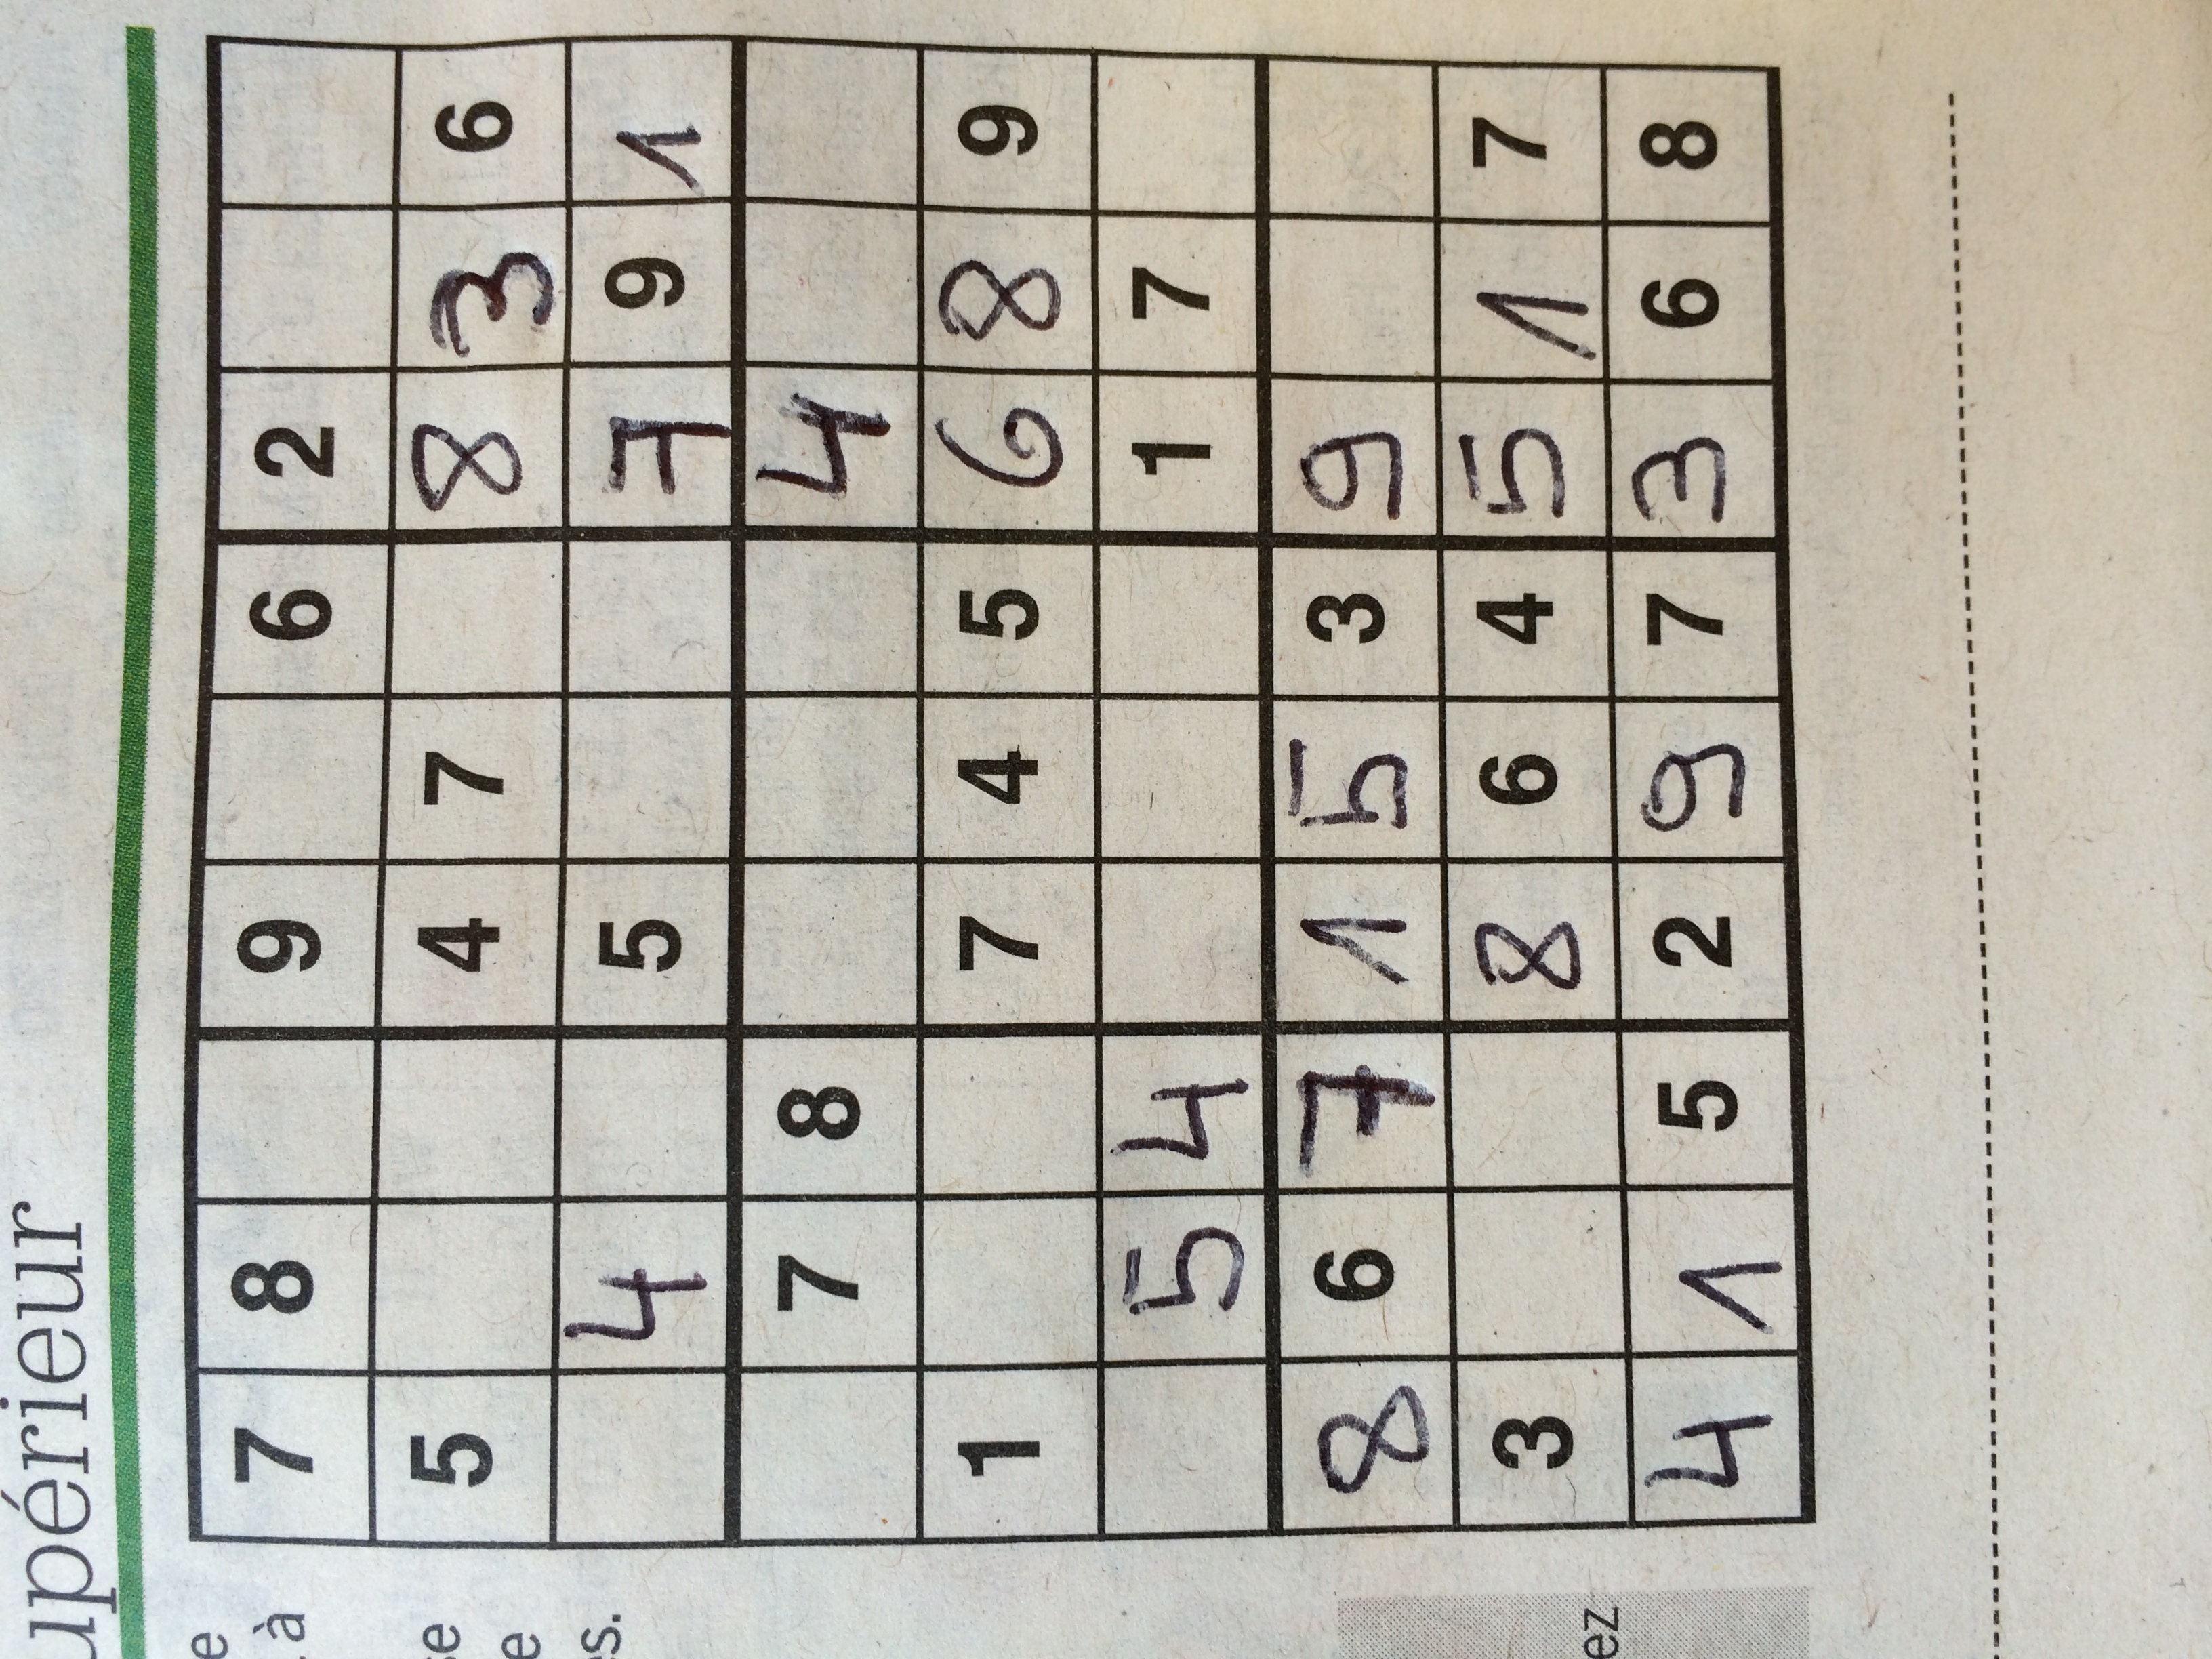 upérieur
e
. à
se
e
es.
ez
7 8 9 6 2
5 4 7 8 3 6
4 5 7 9 1
7 8 4
1 7 4 5 6 8 9
5 4 1 7
8 6 7 1 5 3 9
3 8 6 4 5 1 7
4 1 5 2 9 7 3 6 8